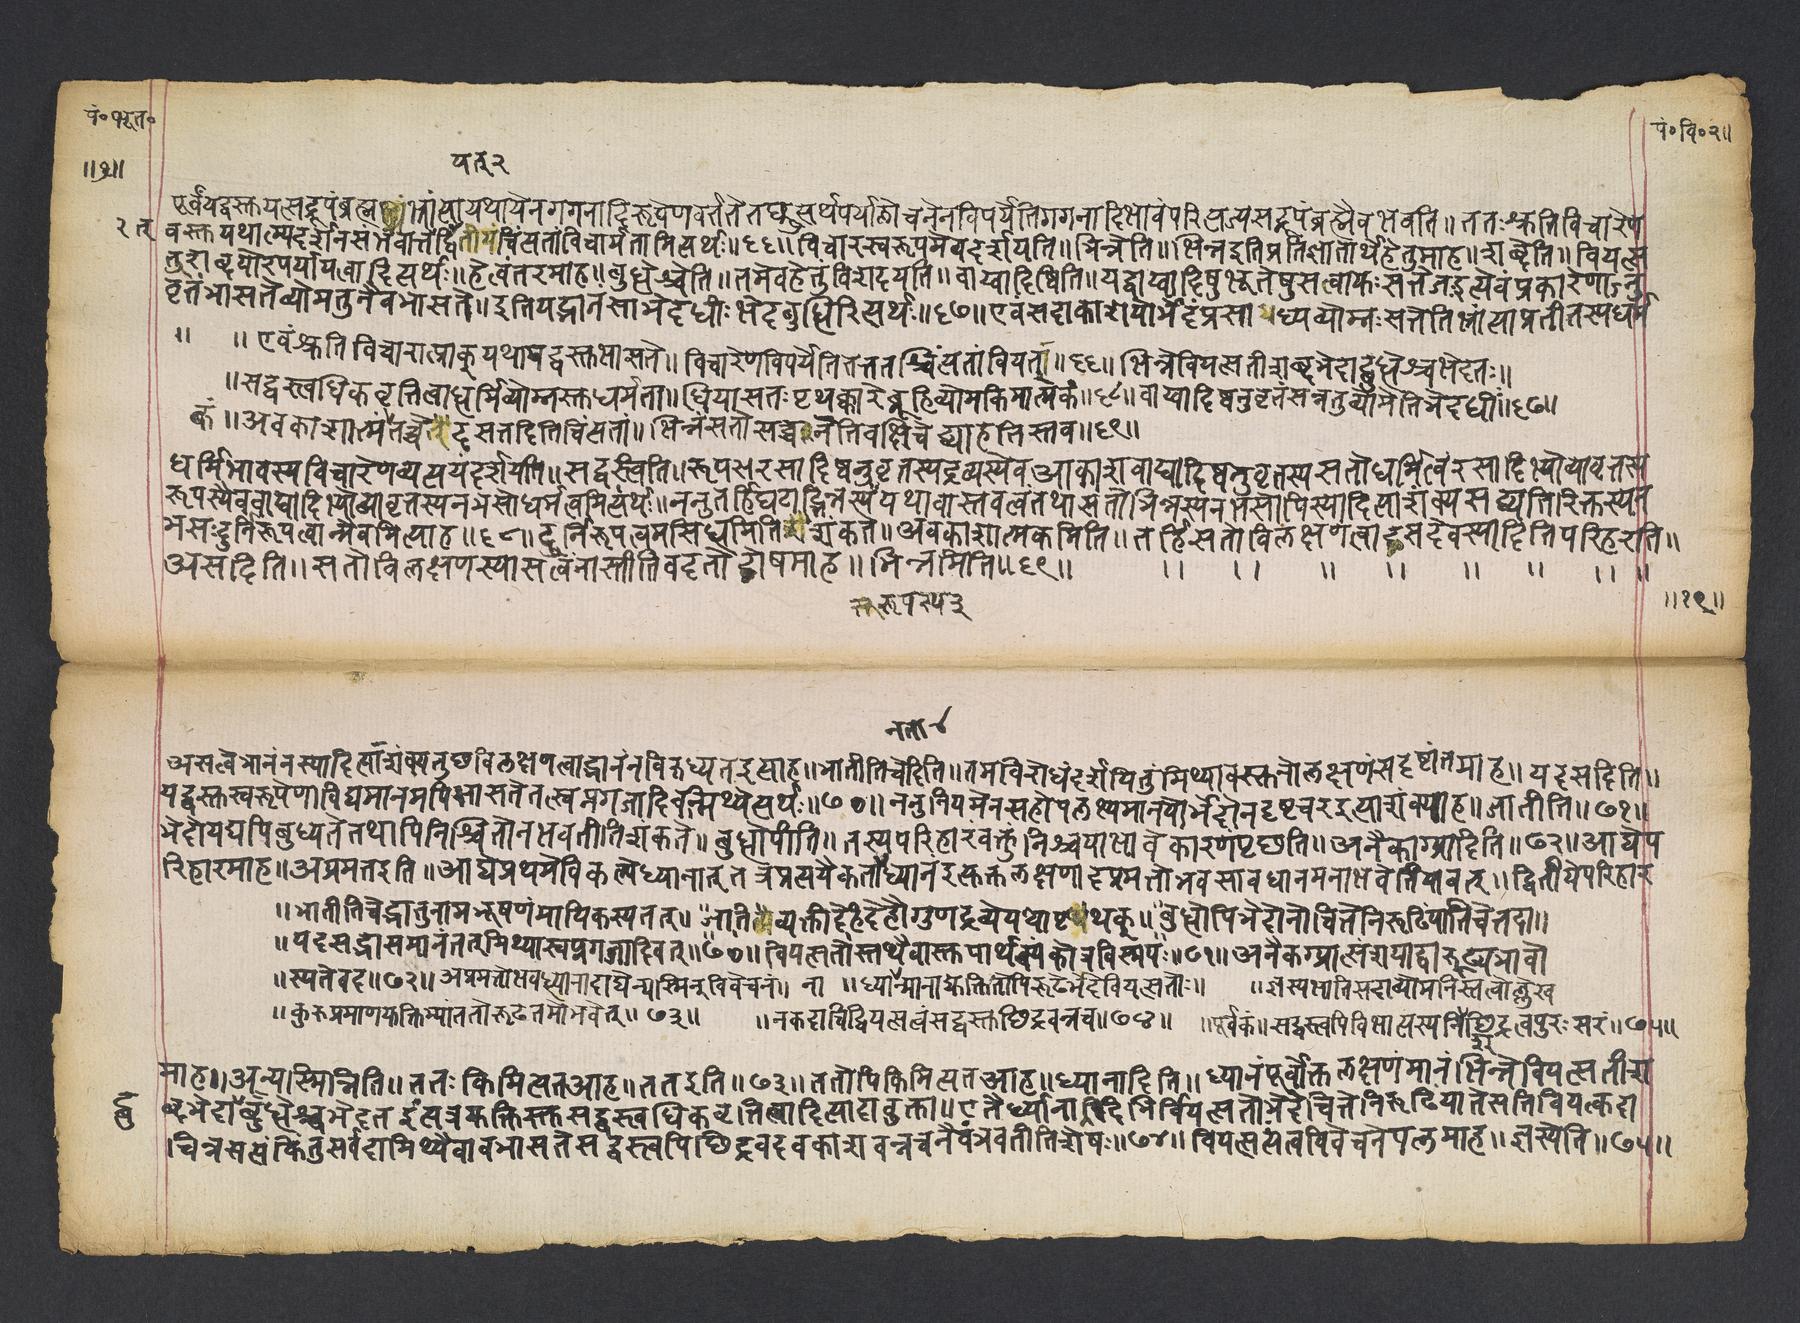 पं॰ भूत॰
पं॰ वि॰ २॥
यत् २
पूर्वं यद्वस्तु यत्सद्रूपं ब्रह्म भ्रांत्या यथा येन गगनादिरूपेण वर्तते तछ्रुत्यर्थपर्यालोचनेन विपर्येति गगनादिभावं परित्यज्य सद्रूपं ब्रह्मैव भवति॥ ततः श्रुतिविचारेण
वस्तुयथात्म्यदर्शनसंभवात्तद्वियत् चिंत्यतां विचार्यतामित्यर्थः॥६६॥ विचारस्वरूपमेव दर्शयति॥ भिन्नेति॥ भिन्न इति प्रतिज्ञातार्थे हेतुमाह॥ शब्देति॥ वियत्स
त् शब्दयोरपर्यायत्वादित्यर्थः॥ हेत्वंतरमाह॥ बुद्धेश्चेति॥ तमेव हेतुं विशदयति॥ वाय्वादिष्विति॥ यद्वाय्वादिषु भूतेषु सत्वायुः सत्तेज इत्येवं प्रकारेणाऽनु
वृत्तं भासते व्योम तु नैव भासते॥ इति यद्भानं सा भेदधीः भेदबुद्धिरित्यर्थः॥६७॥ एवं सदाकाशयोर्भेदं प्रसाध्य व्योम्नः सत्तेति भ्रांत्या प्रतीतस्य धर्म
॥ एवं श्रुतिविचारात्प्राक् यथा यद्वस्तु भासते॥ विचारेण विपर्येति ततस्तच्चिंत्यतां वियत्॥६६॥ भिन्ने वियत्सती शब्दभेदाद्बुद्धेश्च भेदतः॥
॥ सद्वस्त्वधिकवृत्तित्वाद्धर्मि व्योम्नस्तु धर्मता॥ धिया सतः पृथक्कारे ब्रूहि व्योम किमात्मकं॥६८॥ वाय्वादिष्वनुवृत्तं सन्नतु व्योमेति भेदधीः॥६७॥
॥ अवकाशात्मकं तच्चेदसत्तदिति चिंत्यतां॥ भिन्नं सतोऽसच्च नेति वक्षि चेद्व्याहतिस्तव॥६९॥
धर्मिभावस्य विचारेण व्यत्ययं दर्शयति॥ सद्वस्त्विति॥ रूपरसादिष्वनुवृत्तस्य द्रव्यस्येव आकाशवाय्वादिष्वनुवृत्तस्य सतो धर्मित्वं रसादिभ्यो व्यावृत्तस्य
रूपस्येव वाय्वादिभ्यो व्यावृत्तस्य नभसो धर्मत्वमित्यर्थः॥ ननु तर्हि घटाद्भिन्नस्य यथा वास्तवत्वं तथा सतो भिन्नस्य नभसोपि स्यादित्याशंक्य सद्व्यतिरिक्तस्य न
भसः दुर्निरूपत्वान्मैवमित्याह॥६८॥ दुर्निरूपत्वमसिद्धमिति शंकते॥ अवकाशात्मकमिति॥ तर्हि सतो विलक्षणत्वादसदेव स्यादिति परिहरति॥
असदिति॥ सतो विलक्षणस्यासत्वं नास्तीति वदतो दोषमाह॥ भिन्नमिति॥६९॥
॥१९॥
असत्वे भानं न स्यादित्याशंक्य तुछविलक्षणत्वाद्भानं न विरुध्यत इत्याह॥ भातीति चेदिति॥ तमविरोधं दर्शयितुं मिथ्यावस्तुनो लक्षणं सदृष्टांतमाह॥ यदसदिति॥
यद्वस्तु स्वरूपेणाविद्यमानमपि भासते तत्स्वप्नगजादिवन्मिथ्येत्यर्थः॥७०॥ ननु नियमेन सहोपलभ्यमानयोर्भेदो न दृष्टचर इत्याशंक्याह॥ जातीति॥७१॥
भेदो यद्यपि बुध्यते तथापि निश्चितो न भवतीति शंकते॥ बुद्धोपीति॥ तस्य परिहारं वक्तुं निश्चयाभावे कारणं पृछति॥ अनैकाग्र्यादिति॥७२॥ आद्ये प
रिहारमाह॥ अप्रमत्त इति॥ आद्ये प्रथमे विकल्पे ध्यानात् तत्र प्रत्ययैकतानताध्यानमित्युक्तलक्षणादप्रमत्तो भव सावधानमना भवेति यावत्॥ द्वितीये परिहार
॥ भातीति चेद्भातु नाम भूषणं मायिकस्य तत्॥ जातिव्यक्ती देहिदेहौ गुणद्रव्ये यथा पृथक्॥ बुद्धोपि भेदो नो चित्ते निरूढिं याति चेत्तदा॥
॥ यदसद्भासमानं तन्मिथ्यास्वप्नगजादिवत्॥७०॥ वियत्सतोस्तथैवास्तु पार्थक्यं कोत्र विस्मयः॥७१॥ अनैकाग्र्यात्संशयाद्वा रूढ्यभावो
॥ स्य ते वद॥७२॥ अप्रमत्तो भव ध्यानादाद्येन्यस्मिन् विवेचनं॥ ॥ ध्यानान्मानाद्युक्तितोपि रूढे भेदे वियत्सतोः॥ ॥ ज्ञस्य भाति सदा व्योम निस्तत्वोल्लेख
॥ कुरु प्रमाणयुक्तिभ्यां ततो रूढतमो भवेत्॥७३॥ ॥ न कदाचिद्वियत्सत्यं सद्वस्तु छिद्रवन्न च॥७४॥ ॥ पूर्वकं॥ सद्वस्त्वपि विभात्यस्य निश्छिद्रत्वपुरःसरं॥७५॥
माह॥ अन्यस्मिन्निति॥ ततः किमित्यत आह॥ तत इति॥७३॥ ततोपि किमित्यत आह॥ ध्यानादिति॥ ध्यानं पूर्वोक्तलक्षणं मानं भिन्ने वियत्सती श
ब्दभेदाद्बुद्धेश्च भेदत इत्यत्र युक्तिस्तु सद्वस्त्वधिकवृत्तित्वादित्यादावुक्ता॥ एतैर्ध्यानादिभिर्वियत्सतोर्भेदे चित्ते निरूढिं याते सति वियत्कदा
चिन्न सत्यं किंतु सर्वदा मिथ्यैवावभासते सद्वस्त्वपि छिद्रवदवकाशवन्न च नैव भवतीति शेषः॥७४॥ वियत्सत्यत्वविवेचने फलमाह॥ ज्ञस्येति॥७५॥